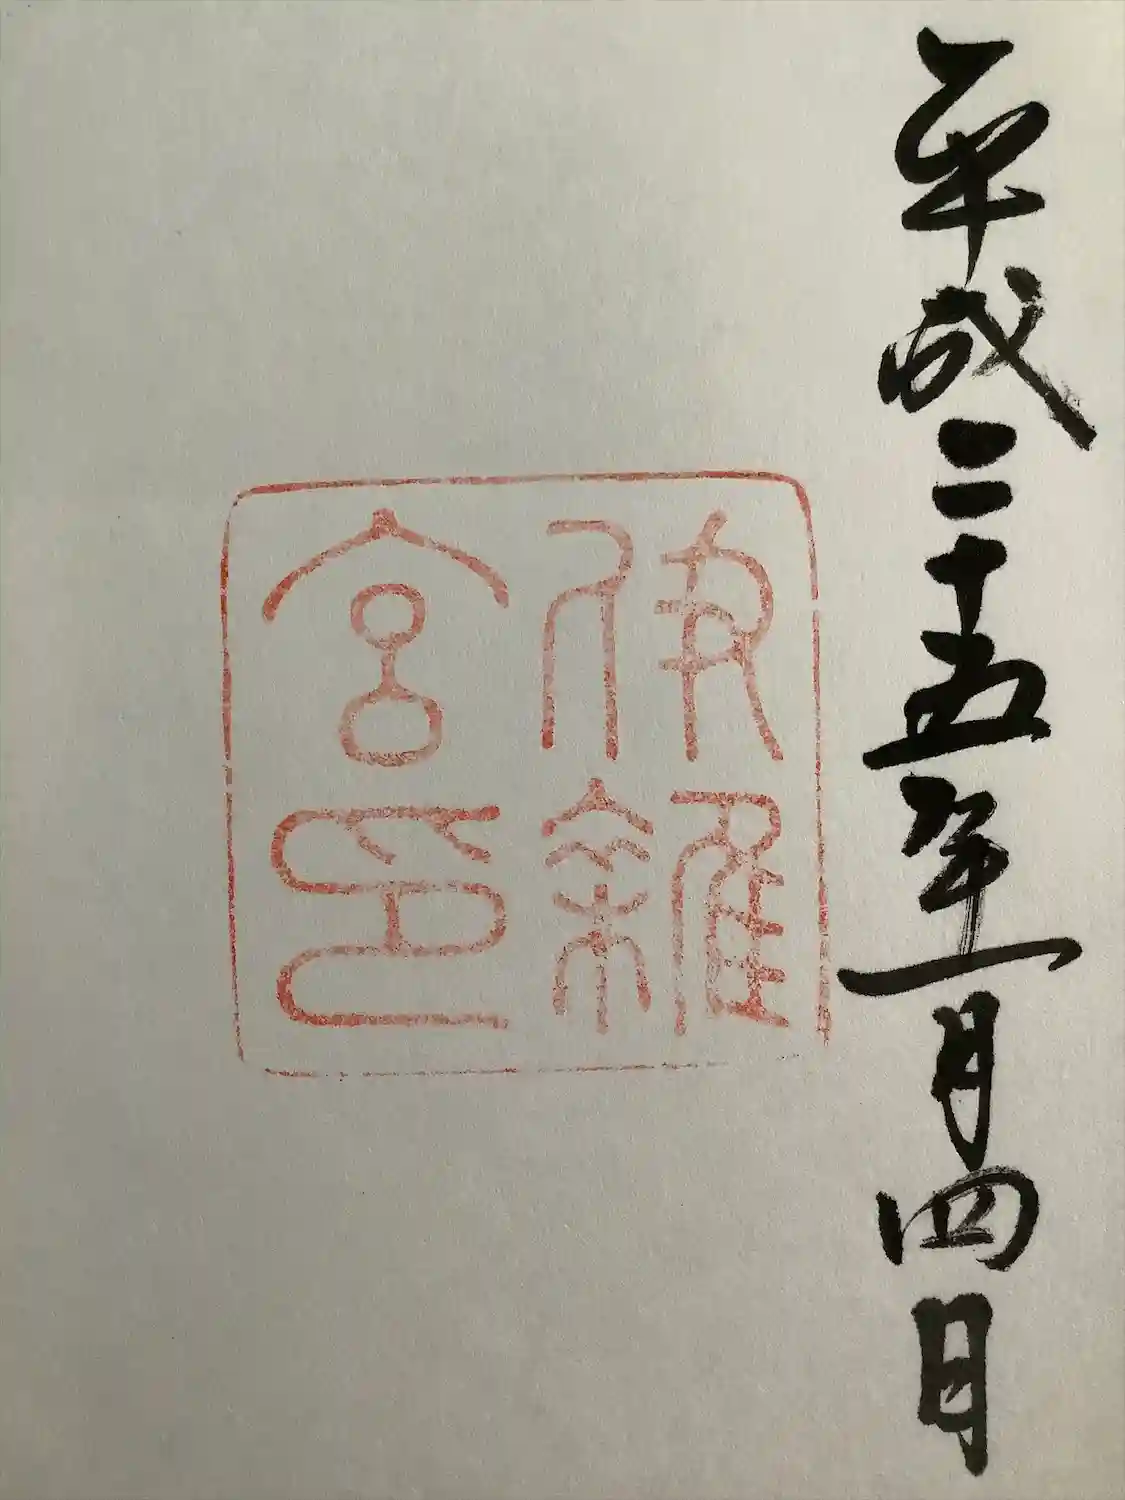 平成二十五年一月四日
伎雜
宮印